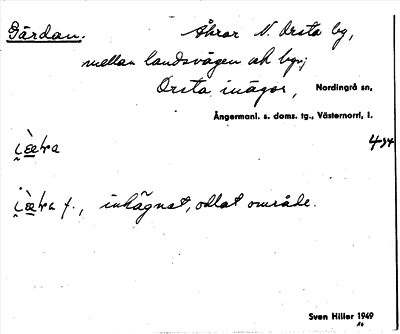 Gärdan. Åkrar N. Orsta by,
mellan landsvägen och byn;
Orsta inägor, Nordingrå sn,
Ångermanl. s. doms. tg., Västernorrl, l.
f., inhägnat, odlat område.
Sven Hiller 1949